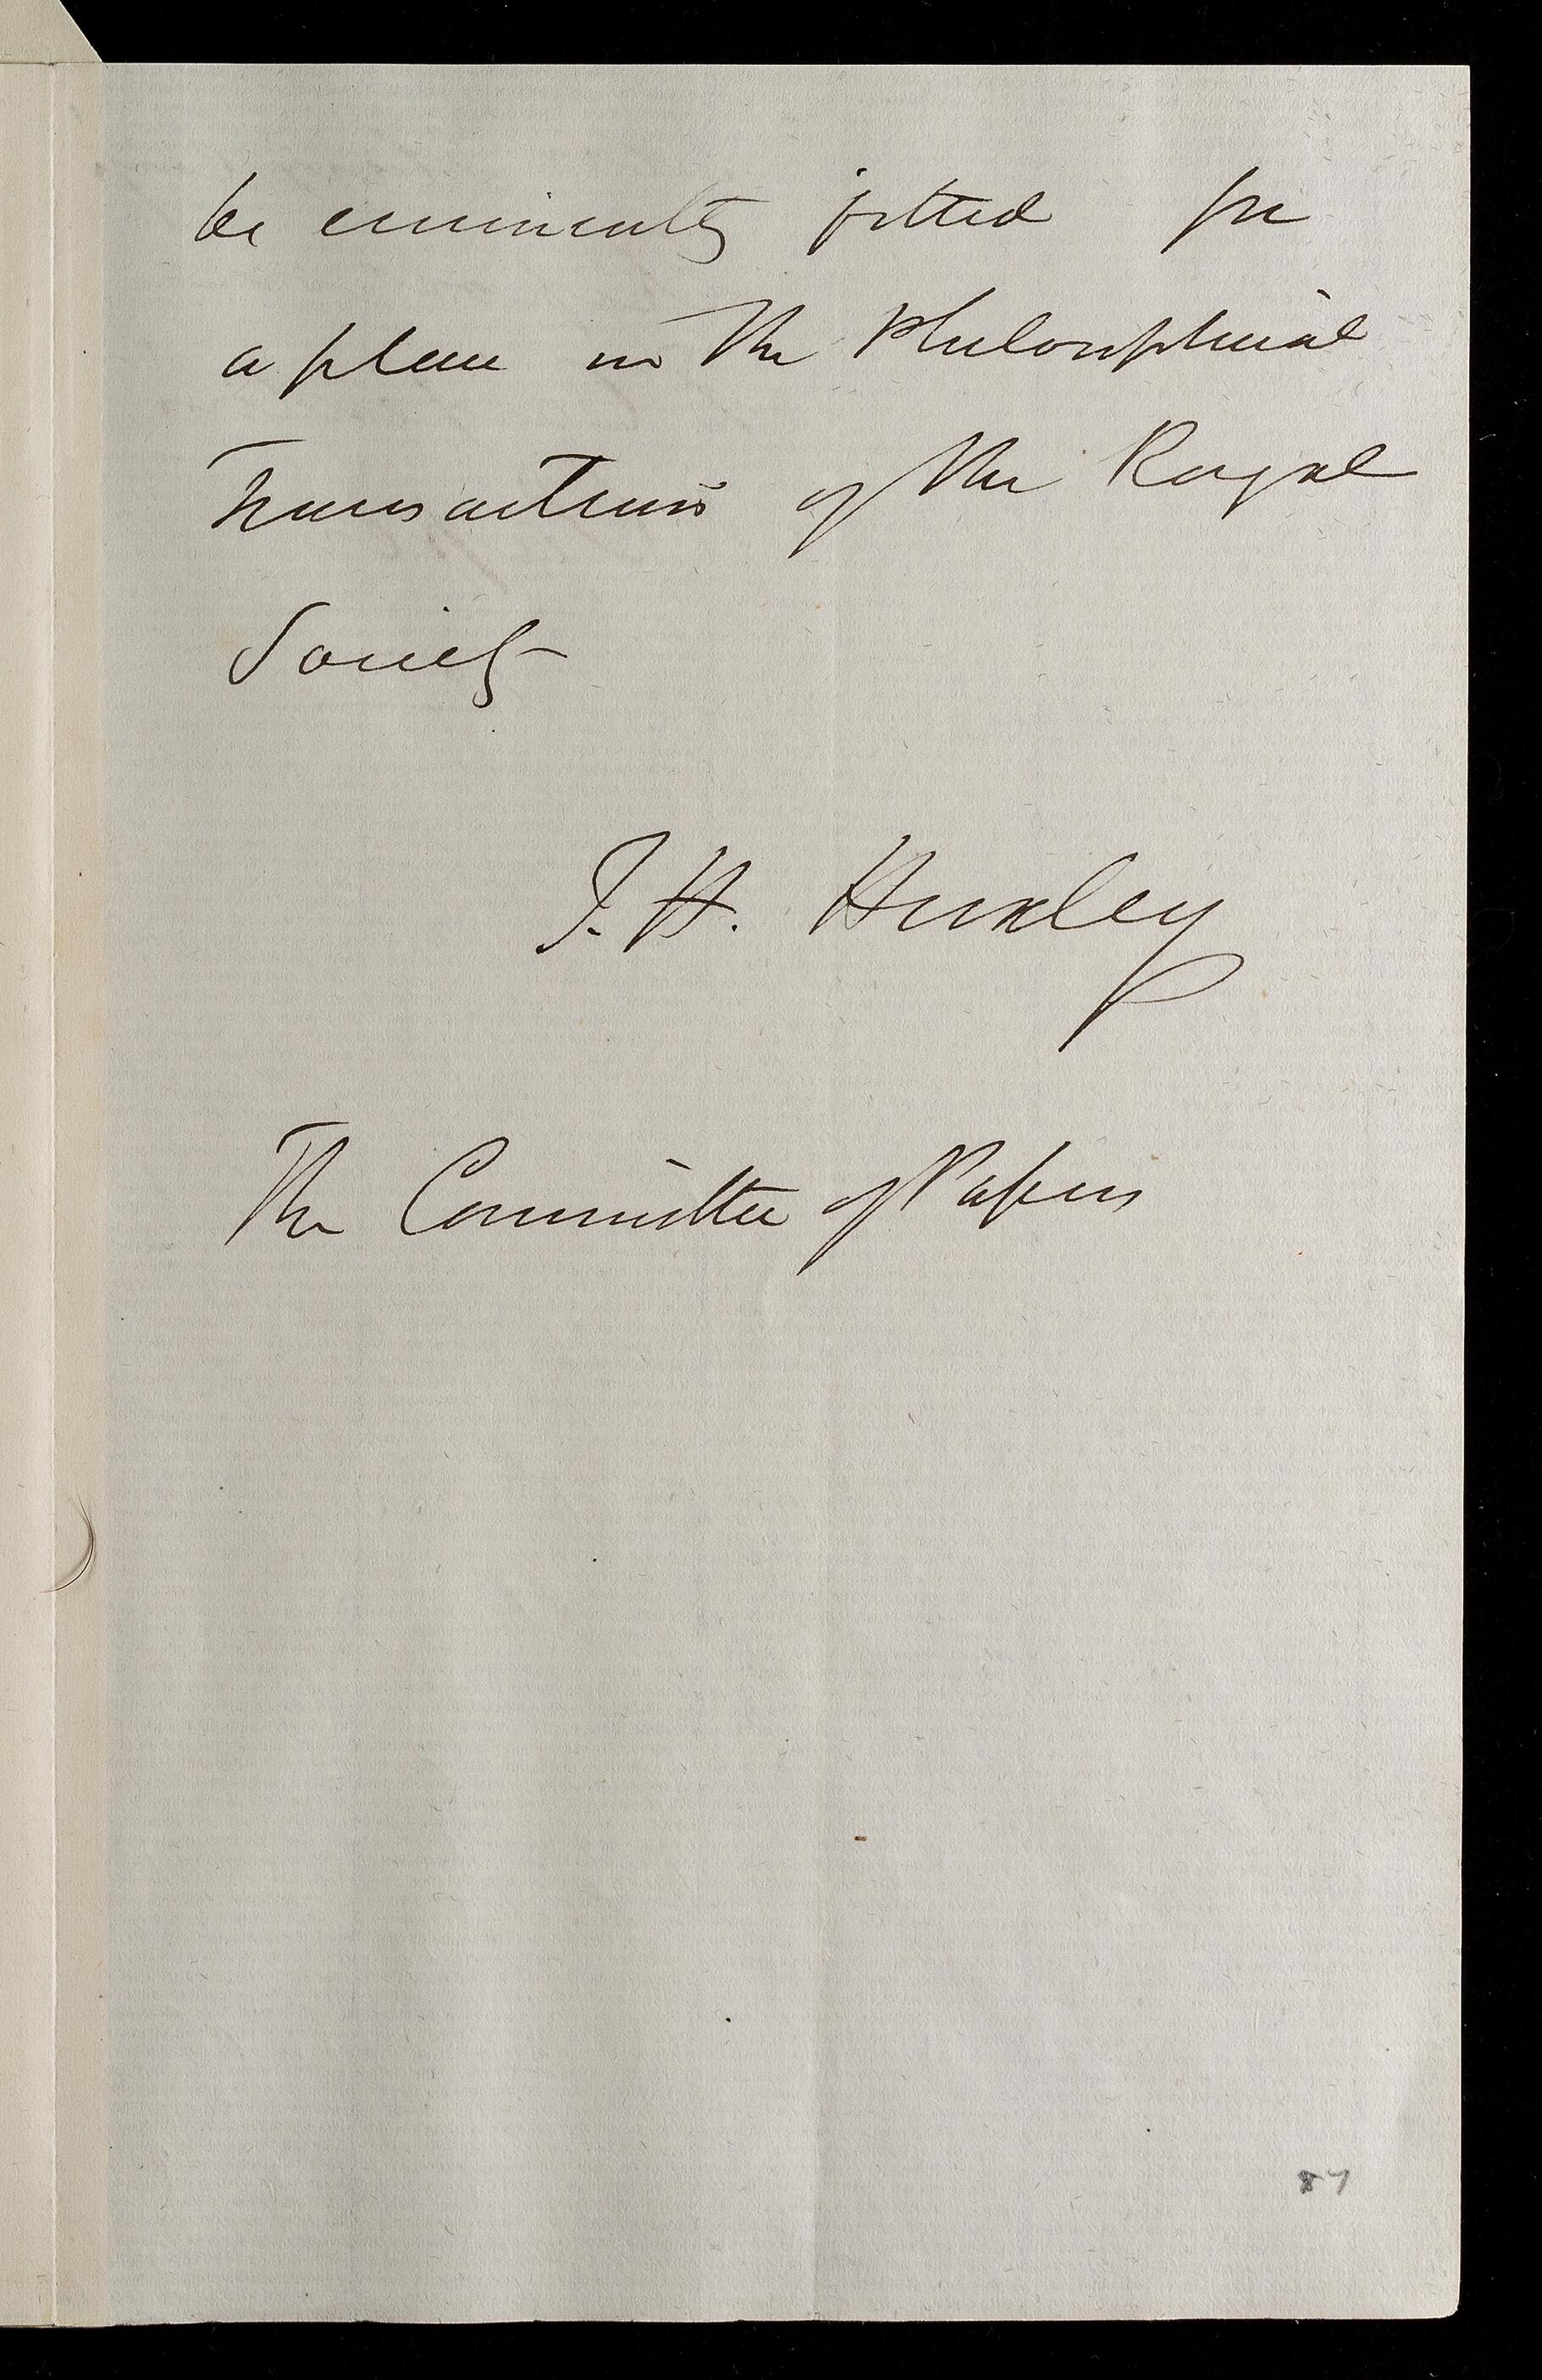 be eminently fitted for
a place in the Philosophical
Transactions of the Royal
Society
T. H. Huxley
The Committee of Papers
87